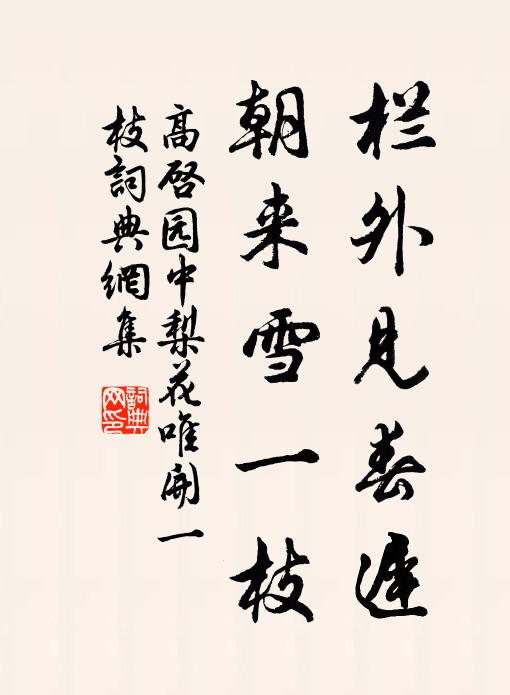 栏外见春迟
朝来雪一枝
高启园中梨花唯开一
枝詞典網集
詞典网印